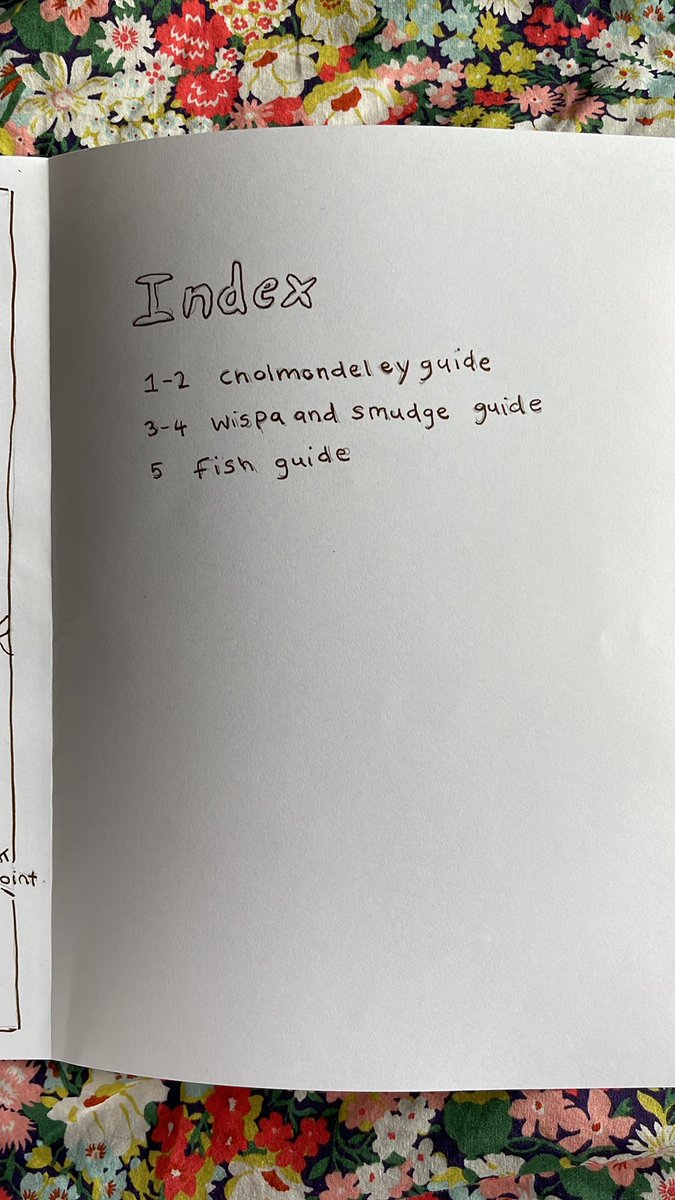 Index
1-2 cholmondeley guide
3-4 wispa and smudge guide
5 fish guide
oint.